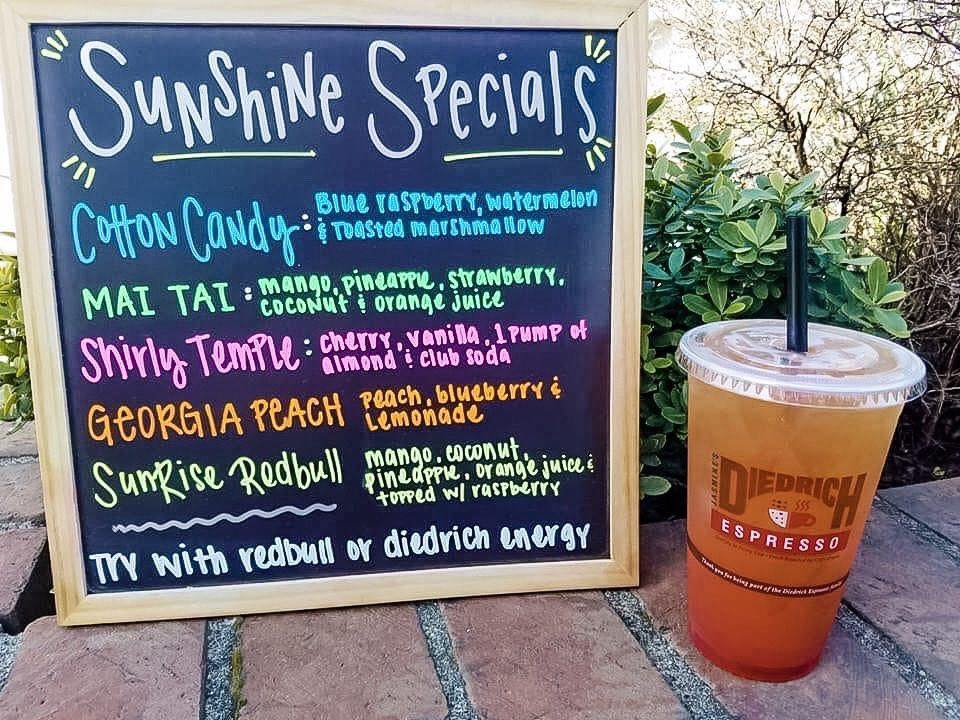 Sunshine Specials
Cotton Candy: Blue raspberry, watermelon
& Toasted marshmallow
MAI TAI: mango, pineapple, strawberry,
coconut & orange juice
Shirly Temple: cherry, vanilla, 1 pump of
almond & club soda
GEORGIA PEACH peach, blueberry &
Lemonade
SunRise Redbull mango, coconut,
pineapple, orange juice &
topped w/ raspberry
Try with redbull or diedrich energy
JASMINE'S
DIEDRICH
ESPRESSO
Thank you for being part of the Diedrich Espresso